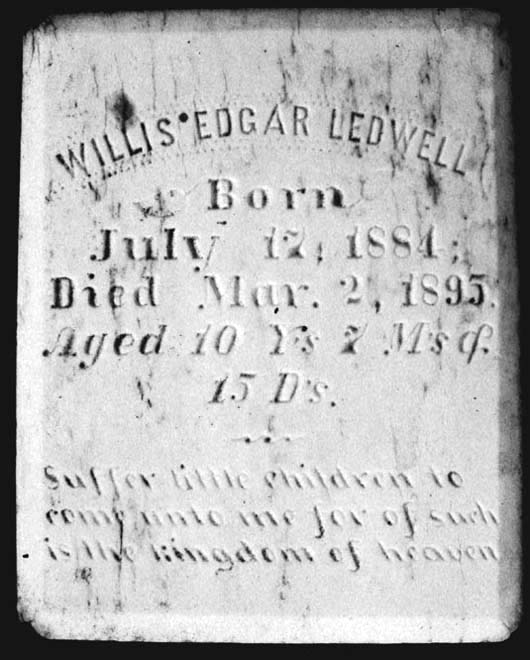 WILLIS EDGAR LEDWELL
Born
July 17, 1884;
Died Mar. 2, 1895.
Aged 10 Y's 7 M's &
15 D's.
Suffer little children to
come unto me for of such
is the kingdom of heaven